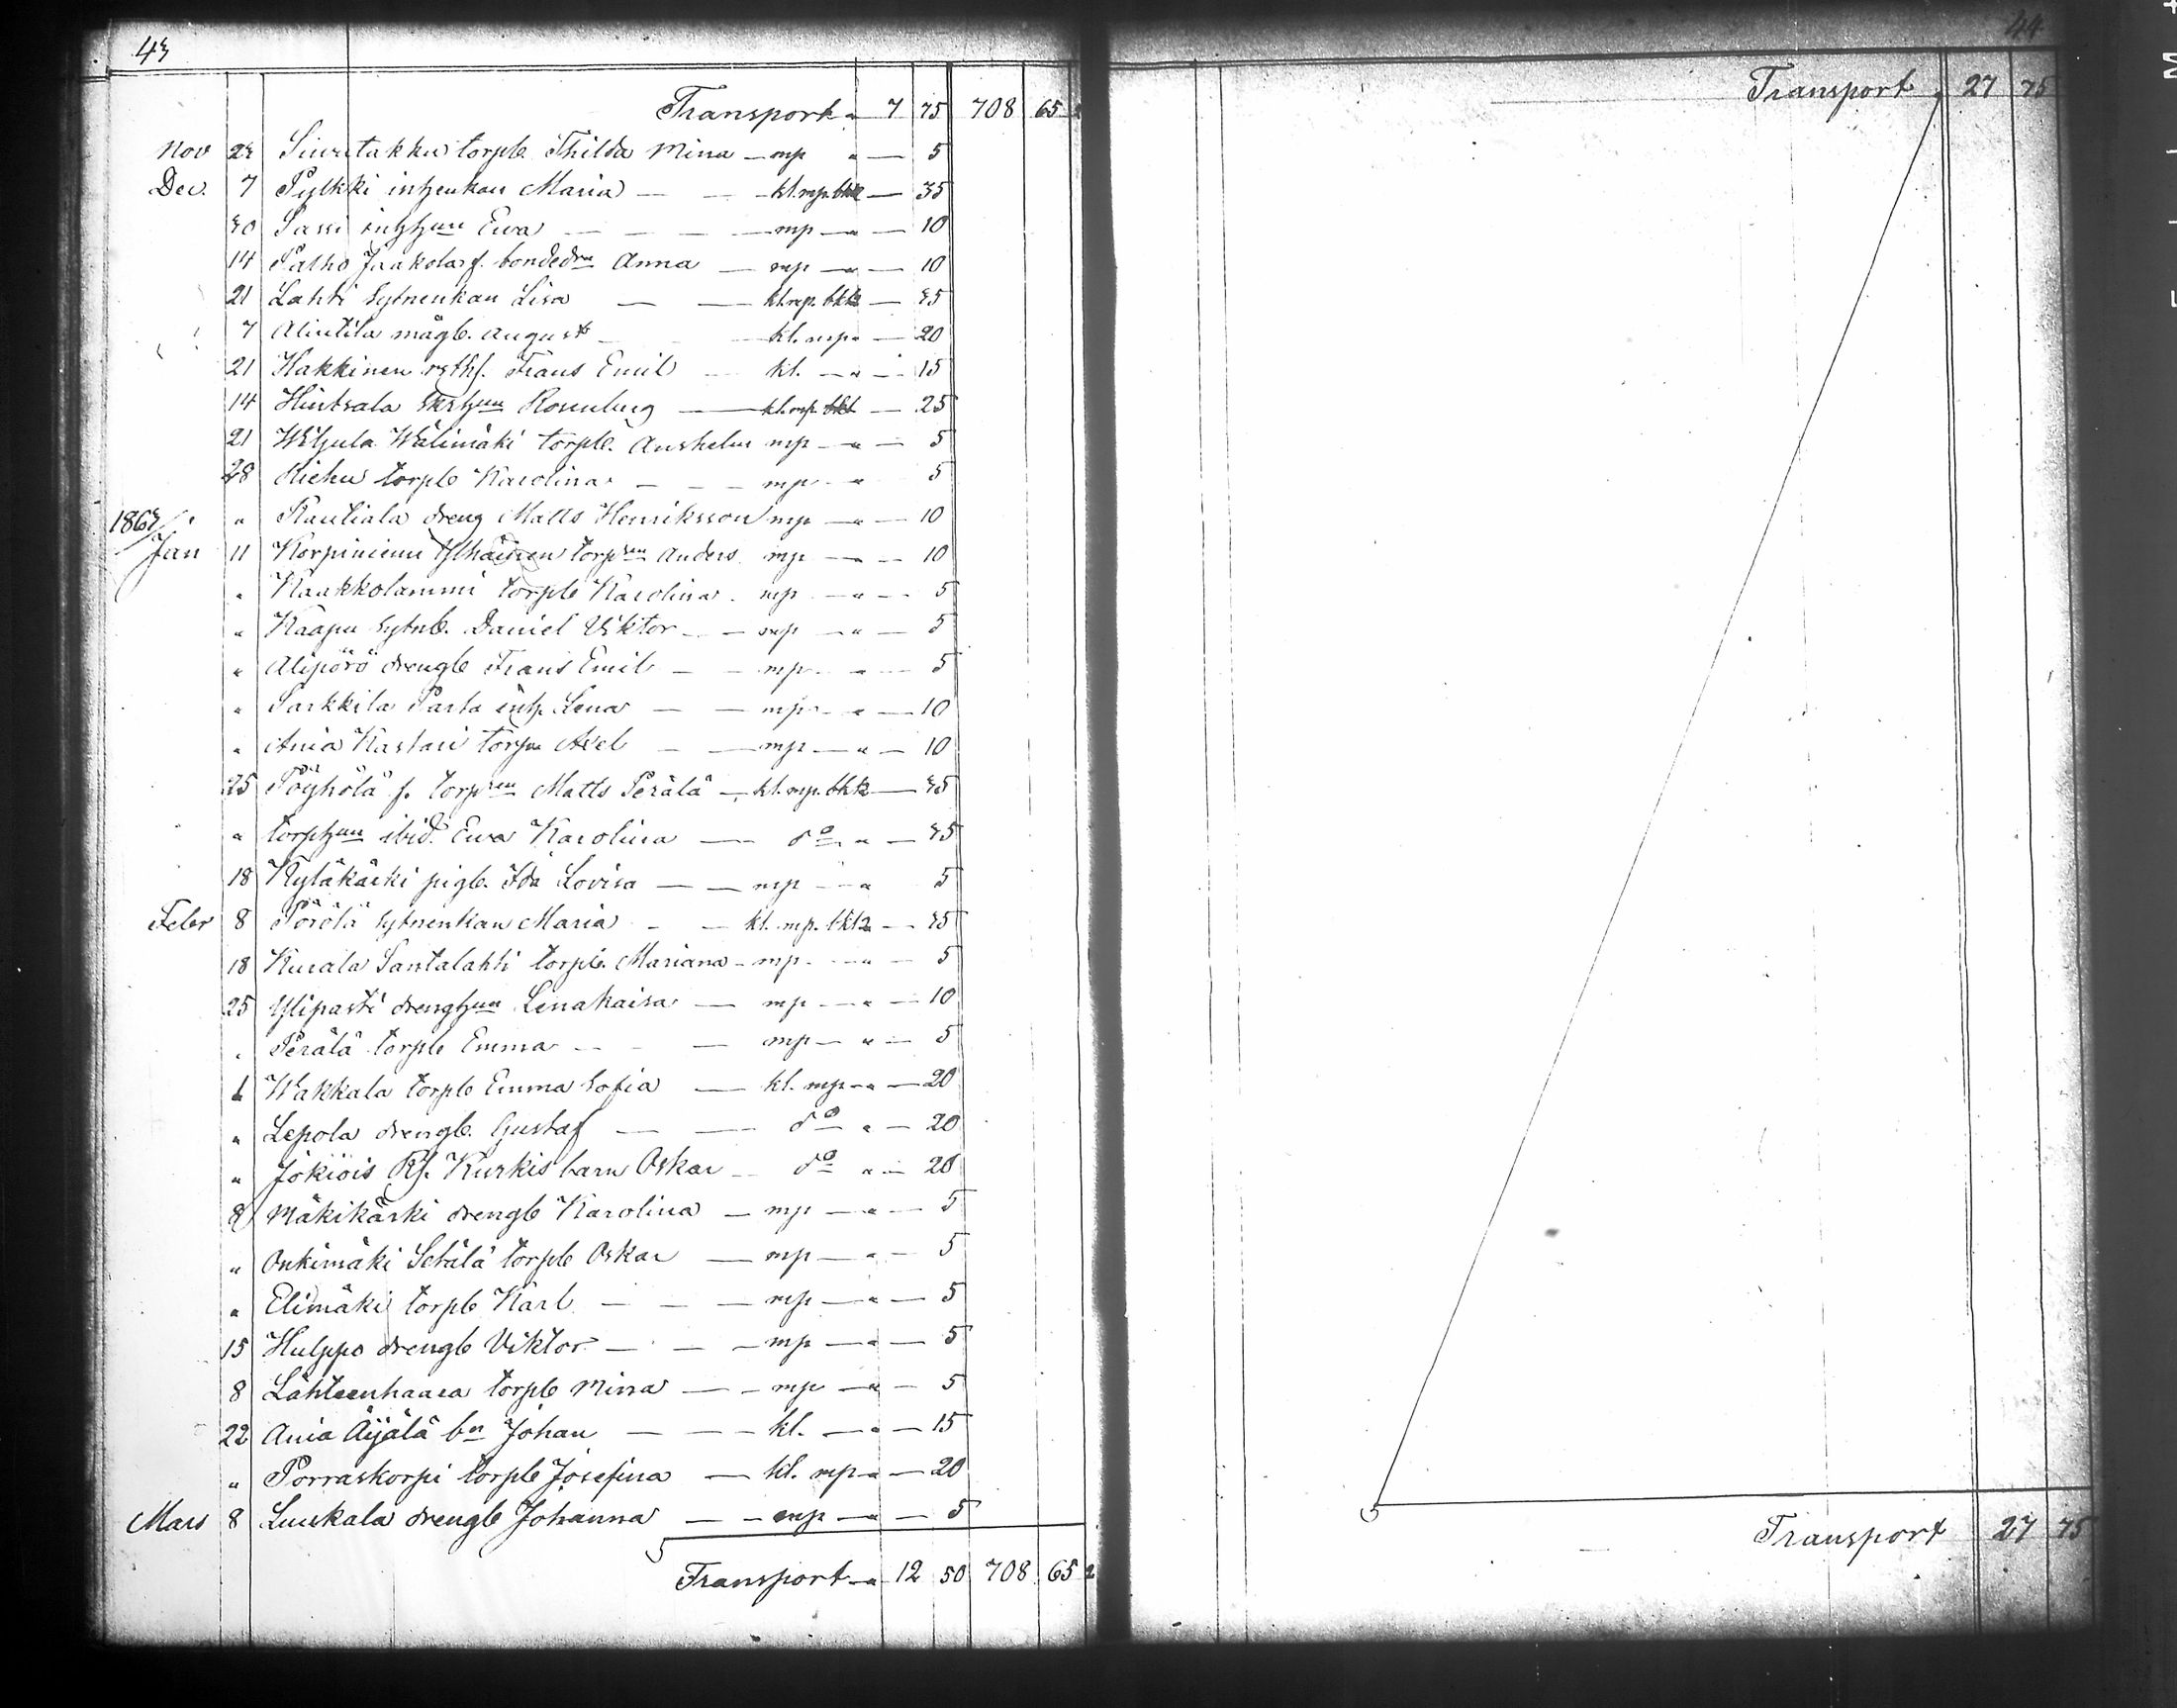 43
Transport " 7 75 708 65 2
Nov 23 torplb Thilda Mina — mp " — 5
Dec. 7 Pylkki inhysenkan Maria — — kl. mp. bkl " — 35
30 Sassi Ewa — — — mp — " — 10
14 Patho Jaakola f. bondedrn Anna — mp — " — 10
21 Lahti sytnenkan Lisa — — kl. mp. bkk — 35
7 Alintila mågb. August — kl. mp " — 20
21 Hakkinen Frans Emil — kl. — " — 15
14 Hintsala Rosenberg — kl. mp. bkl — 25
21 Wiljula Wälimäki torplb. Anshelm mp — " — 5
28 Kiehu torplb Karolina — — — mp — " 5
1863/ " Rautiala dreng Matts Henriksson mp — " — 10
Jan 11 Korpiniemi torpren Anders mp — " — 10
" Kaakkolammi torplb Karolina — mp — " — 5
" Kaapu sytnb. Daniel Viktor — — mp — " — 5
" Alipörö drengb Frans Emil — — mp — " — 5
" Sarkkila Parta inh. Lena — — mp — " — 10
" Ania Kastari torpn Axel — — mp — " — 10
25 Pöyhölä f. torpren Matts Perälä — kl. mp. bkk — 35
" torphun ibid. Ewa Karolina — do " — 35
18 Kyläkäski pigb. Ida Lovisa — — mp — " 5
Febr 8 Pörölä sytnenkan Maria — — kl. mp. bkl " — 35
18 Kurala Santalahti torplb. Mariana — mp — " — 5
25 Ylipasti drenghun Lenakaisa — mp — " — 10
" Perälä torplb Emma — — — mp — " — 5
1 Wakkala torplb Emma Sofia — kl. mp — " — 20
" Lepola drengb. Gustaf — — do " — 20
" Jokiois Kurkis barn Oskar — do " — 20
8 Mäkikärki drengb Karolina — mp — " — 5
" Onkimäki Setälä torplb Oskar — mp — " — 5
" Elimäki torplb Karl — — — mp — " — 5
15 Hulppo drengb Viktor — — — mp — " — 5
8 Lähteenhaara torplb Minna — — mp — " — 5
22 Ania Äijälä bn Johan — — — kl. — " — 15
" Porraskorpi torplb Josefina — kl. mp " — 20
Mars 8 Luukala drengb Johanna — — mp — " — 5
Transport — " 12 50 708 65 2
44
Transport " 27 75
Transport 27 75